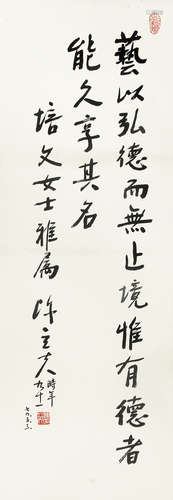 藝以弘德而無止境惟有德者
能久享其名
培文女士雅属 陈立夫 時年
九十一